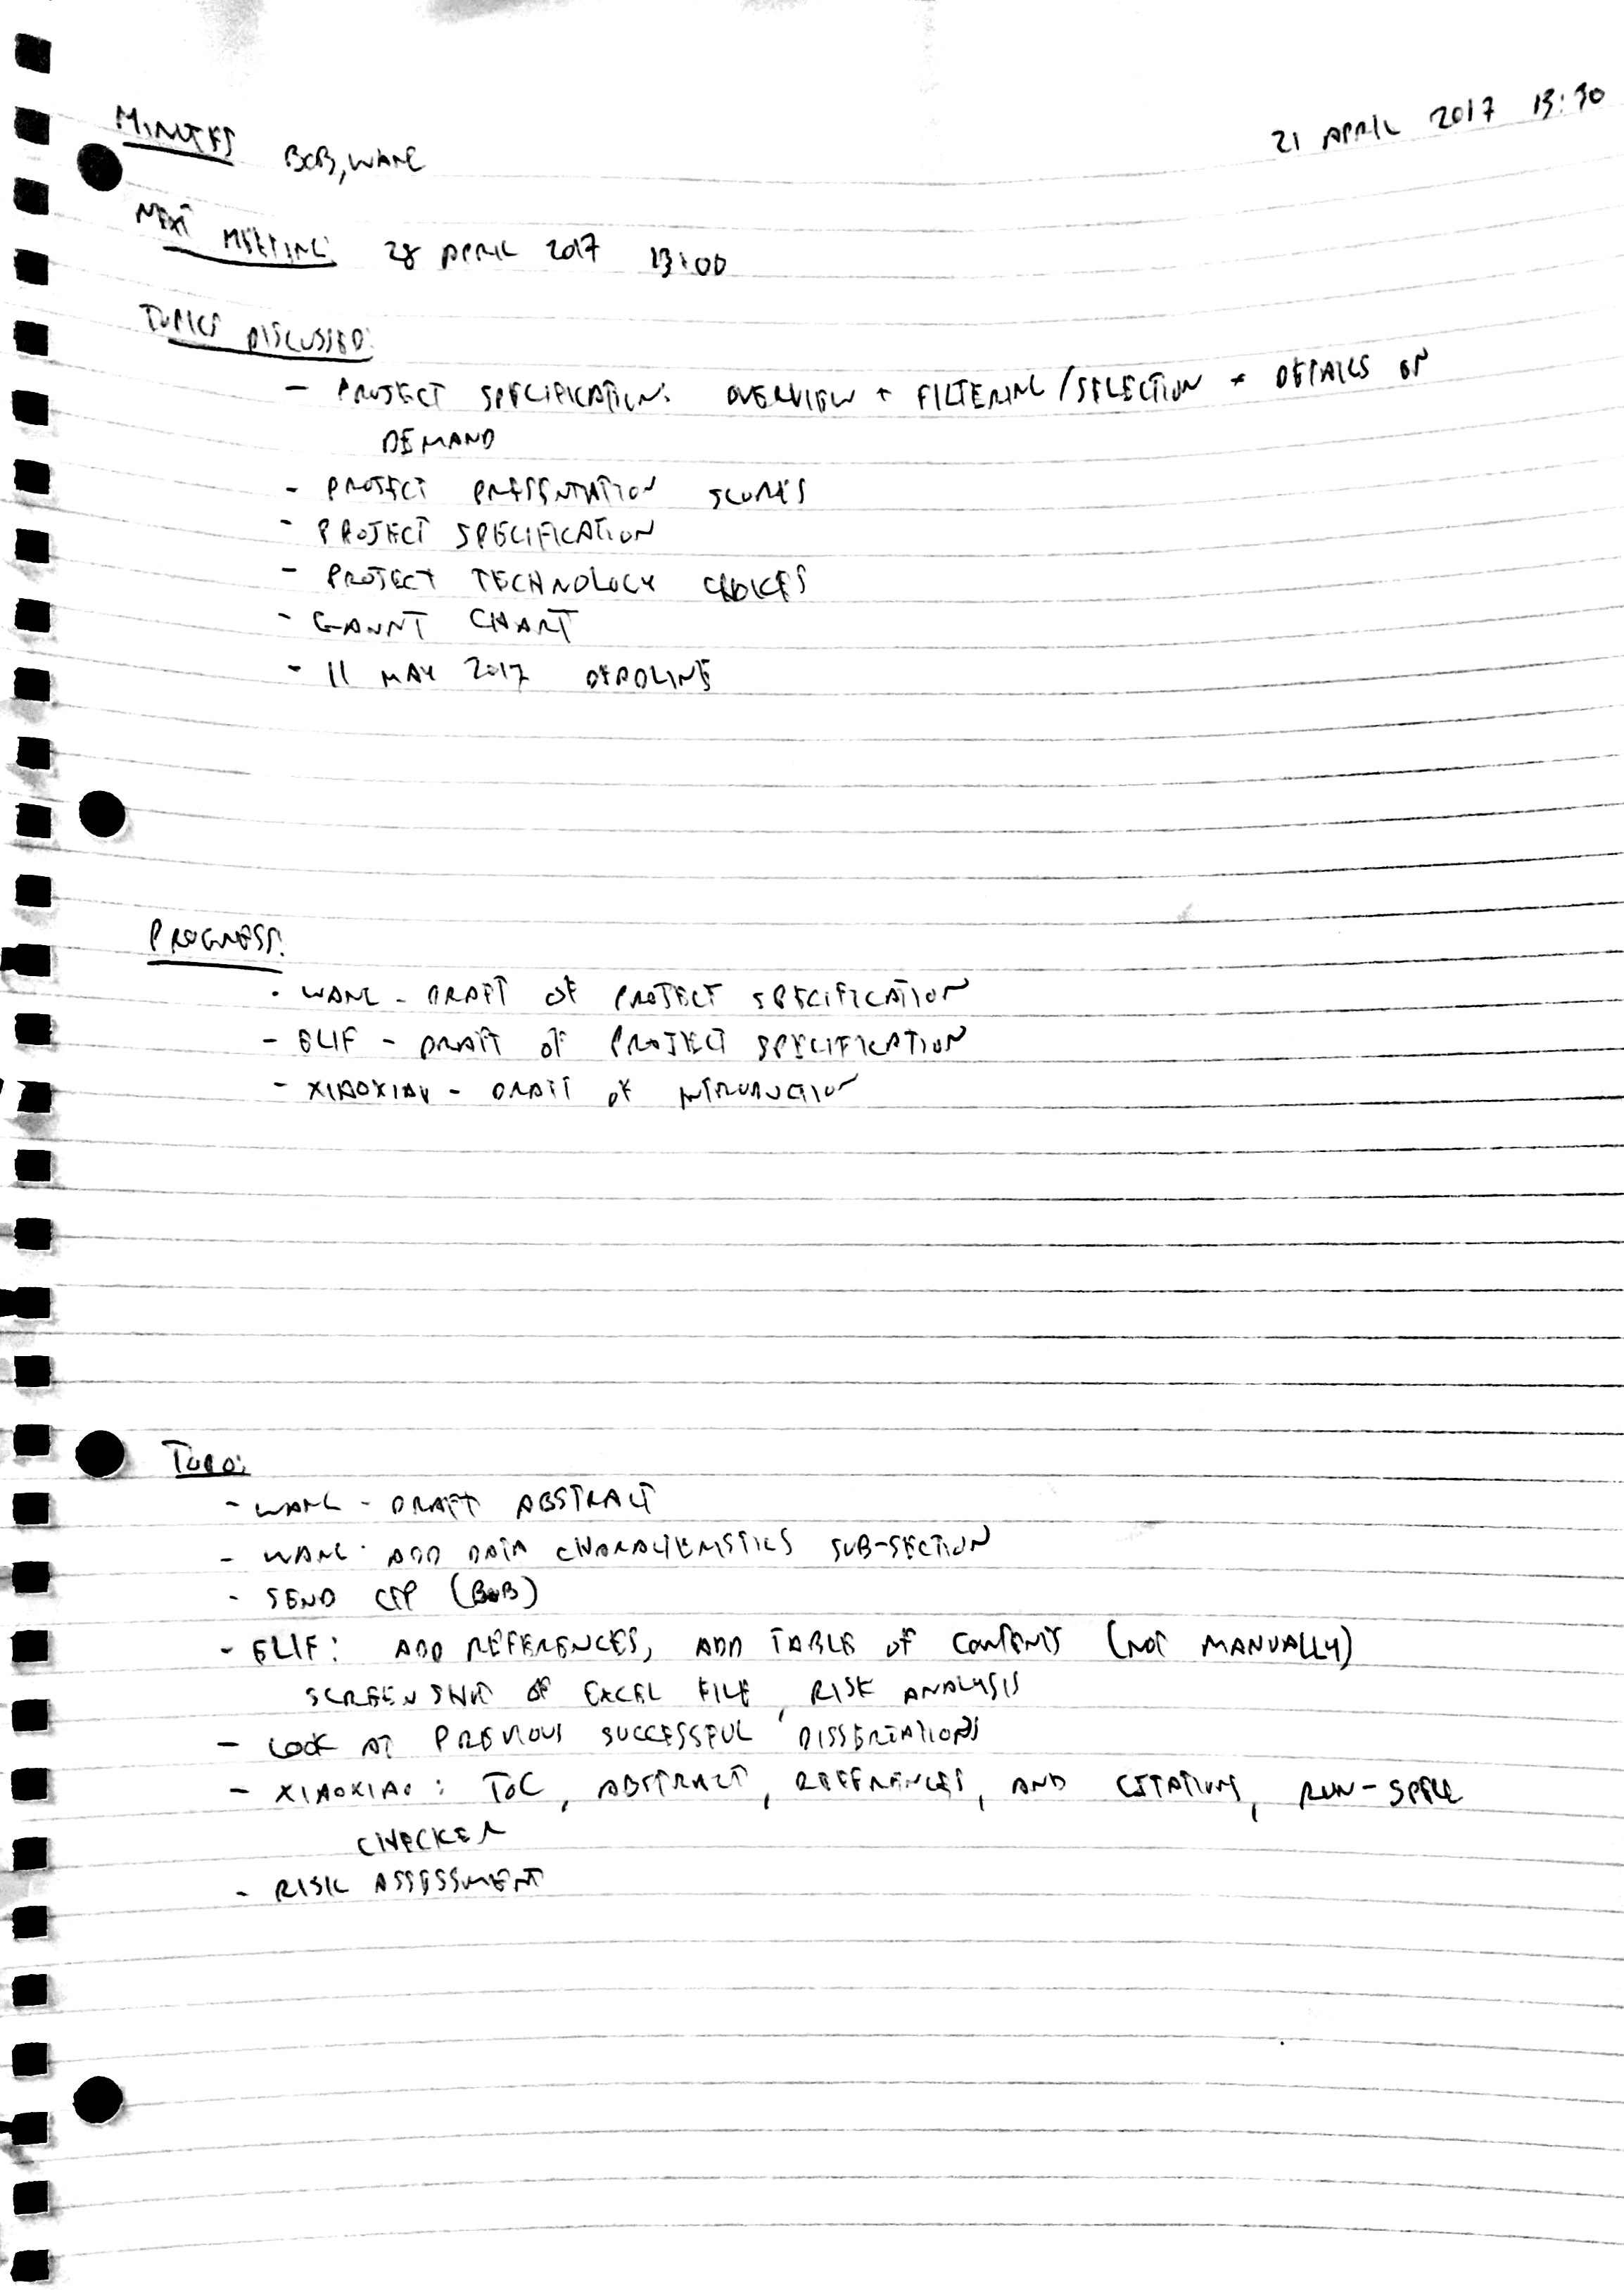 MINUTES BOB, WANG 21 APRIL 2017 13:30
NEXT MEETING: 28 APRIL 2017 13:00
TOPICS DISCUSSED:
- PROJECT SPECIFICATION: OVERVIEW + FILTERING/SELECTION + DETAILS ON
DEMAND
- PROJECT PRESENTATION SCORES
- PROJECT SPECIFICATION
- PROJECT TECHNOLOGY CHOICES
- GANNT CHART
- 11 MAY 2017 DEADLINE
PROGRESS:
- WANG - DRAFT OF PROJECT SPECIFICATION
- ELIF - DRAFT OF PROJECT SPECIFICATION
- XIAOXIAO - DRAFT OF INTRODUCTION
TODO:
- WANG - DRAFT ABSTRACT
- WANG - ADD DATA CHARACTERISTICS SUB-SECTION
- SEND (BOB)
- ELIF: ADD REFERENCES, ADD TABLE OF CONTENTS (NOT MANUALLY)
SCREENSHOT OF EXCEL FILE, RISK ANALYSIS
- LOOK AT PREVIOUS SUCCESSFUL DISSERTATIONS
- XIAOXIAO: TOC, ABSTRACT, REFERENCES, AND CITATIONS, RUN-SPELL
CHECKER
- RISK ASSESSMENT